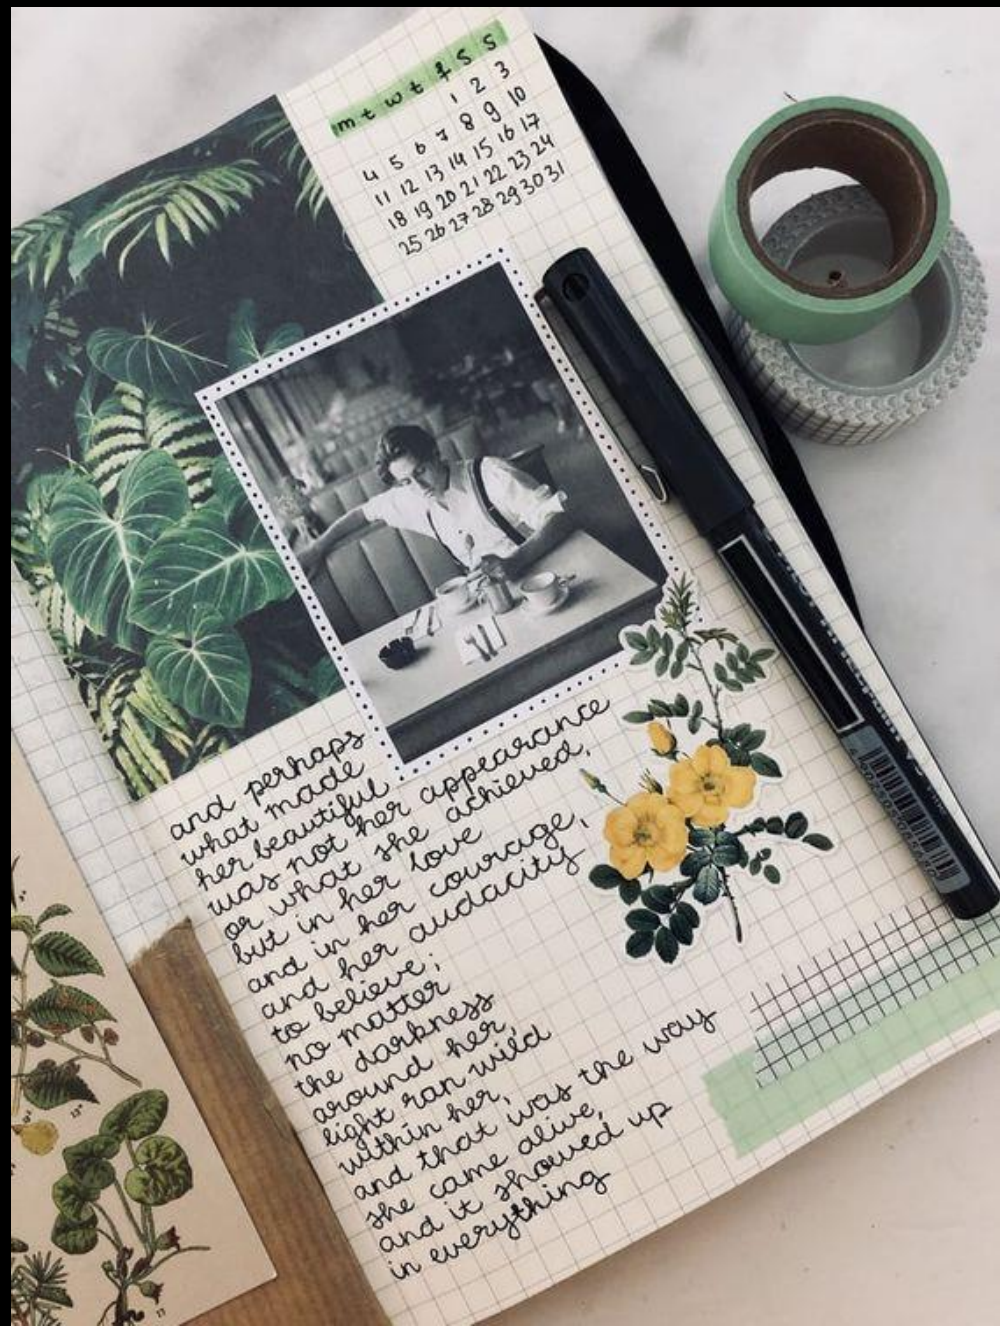 m t w t f s s
1 2 3
4 5 6 7 8 9 10
11 12 13 14 15 16 17
18 19 20 21 22 23 24
25 26 27 28 29 30 31
and perhaps
what made
her beautiful
was not her appearance
or what she achieved,
but in her love
and in her courage,
and her audacity
to believe;
no matter
the darkness
around her,
light ran wild
within her,
and that was the way
she came alive,
and it showed up
in everything